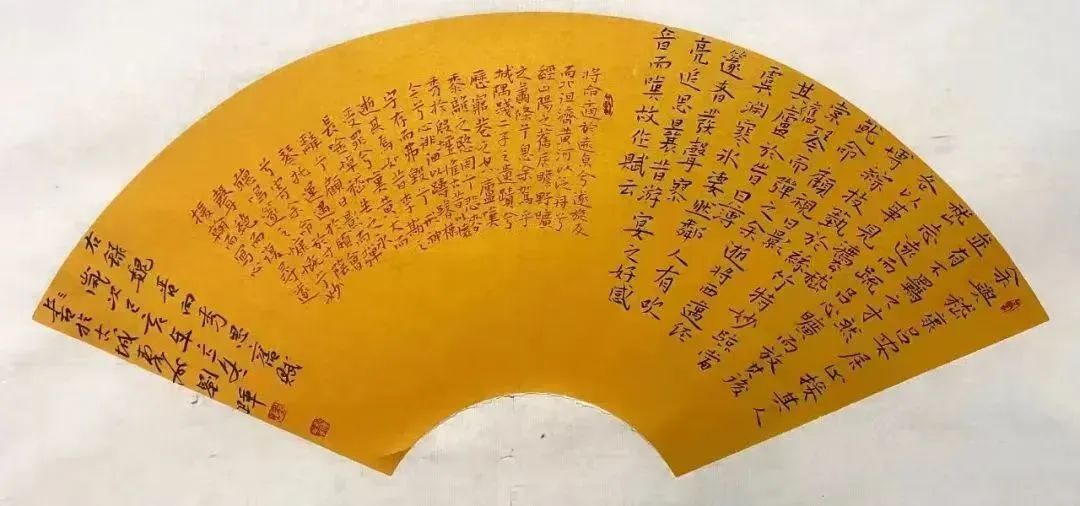 余與嵇康呂安居止接其人
並有不羈之才然
嵇志遠而疏呂心曠而放其後
各以事見法嵇
博綜技藝於絲竹特妙臨當
就命顧視日影
索琴而彈之余逝將西邁經
其舊廬於昔日薄
虞淵寒冰淒然鄰人有吹
篴者發聲寥
亮追思曩昔游宴之好感
音而嘆故作賦云
將命適於遠京兮遂旋反
而北徂濟黃河以泛舟兮
經山陽之舊居瞻野曠
之蕭條兮息余駕乎
城隅踐二子之遺蹟兮
歷窮巷之空廬嘆
黍離之愍周兮悲麥
秀於殷墟惟古昔以懷
今兮心徘徊以躊躇棟
宇存而弗毀兮形神
逝其焉如昔李斯之
受罪兮嘆黃犬而
長吟悼嵇生之永
辭兮顧日影而彈
琴托運遇於領會
兮寄余命於寸陰
聽鳴笛之慷慨兮妙
聲絕而復尋
援翰而寫心
右録魏晉向秀思舊賦
歲次己亥年立冬劉暉
書於古城